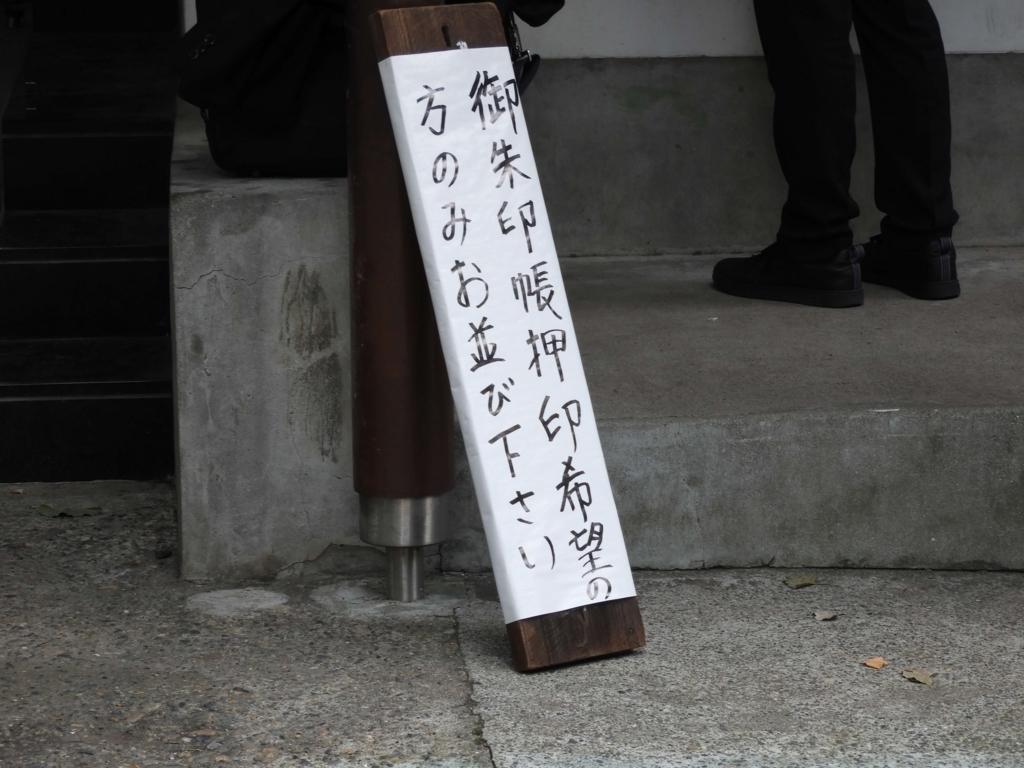 御朱印帳押印希望の
方のみお並び下さい